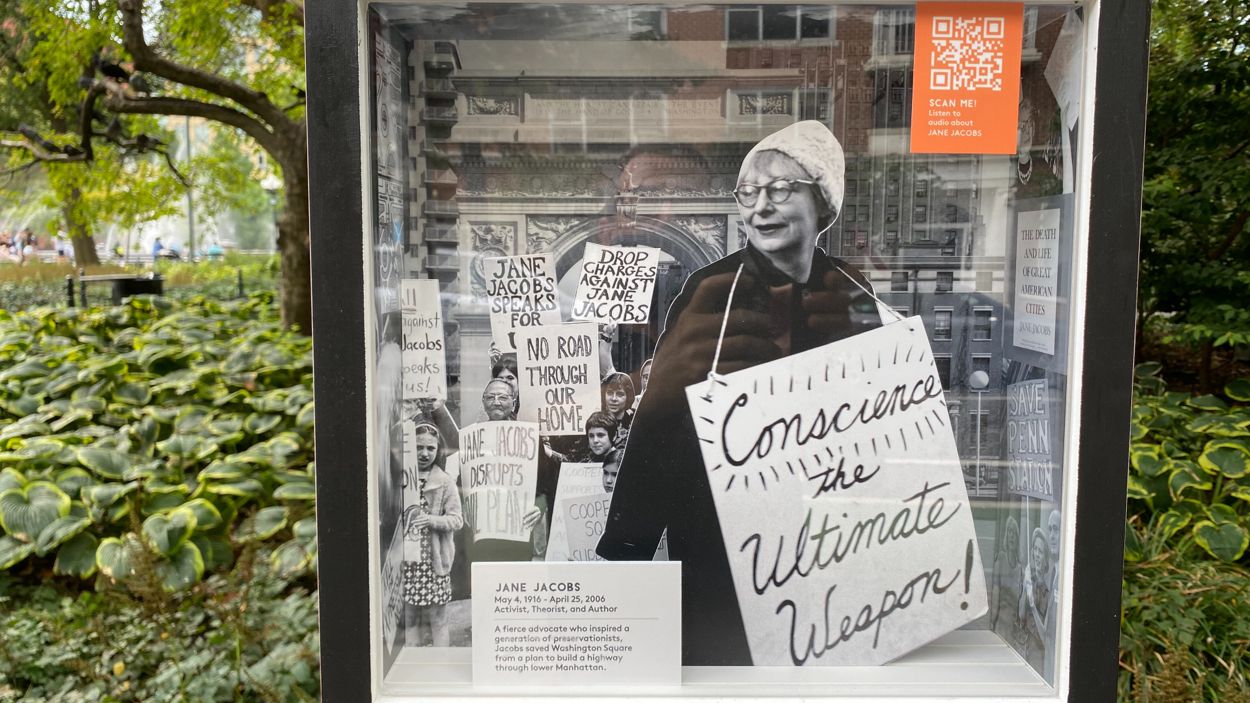 SCAN ME!
Listen to
audio about
JANE JACOBS
JANE
JACOBS
SPEAKS
FOR
DROP
CHARGES
AGAINST
JANE
JACOBS
against
Jacobs
us!
NO ROAD
THROUGH
OUR
HOME
JANE JACOBS
DISRUPTS
PLAN
COOPER
SQ
Conscience
the
Ultimate
Weapon!
THE DEATH
AND LIFE
OF GREAT
AMERICAN
CITIES
JANE JACOBS
SAVE
PENN
STATION
JANE JACOBS
May 4, 1916 - April 25, 2006
Activist, Theorist, and Author
A fierce advocate who inspired a
generation of preservationists,
Jacobs saved Washington Square
from a plan to build a highway
through lower Manhattan.